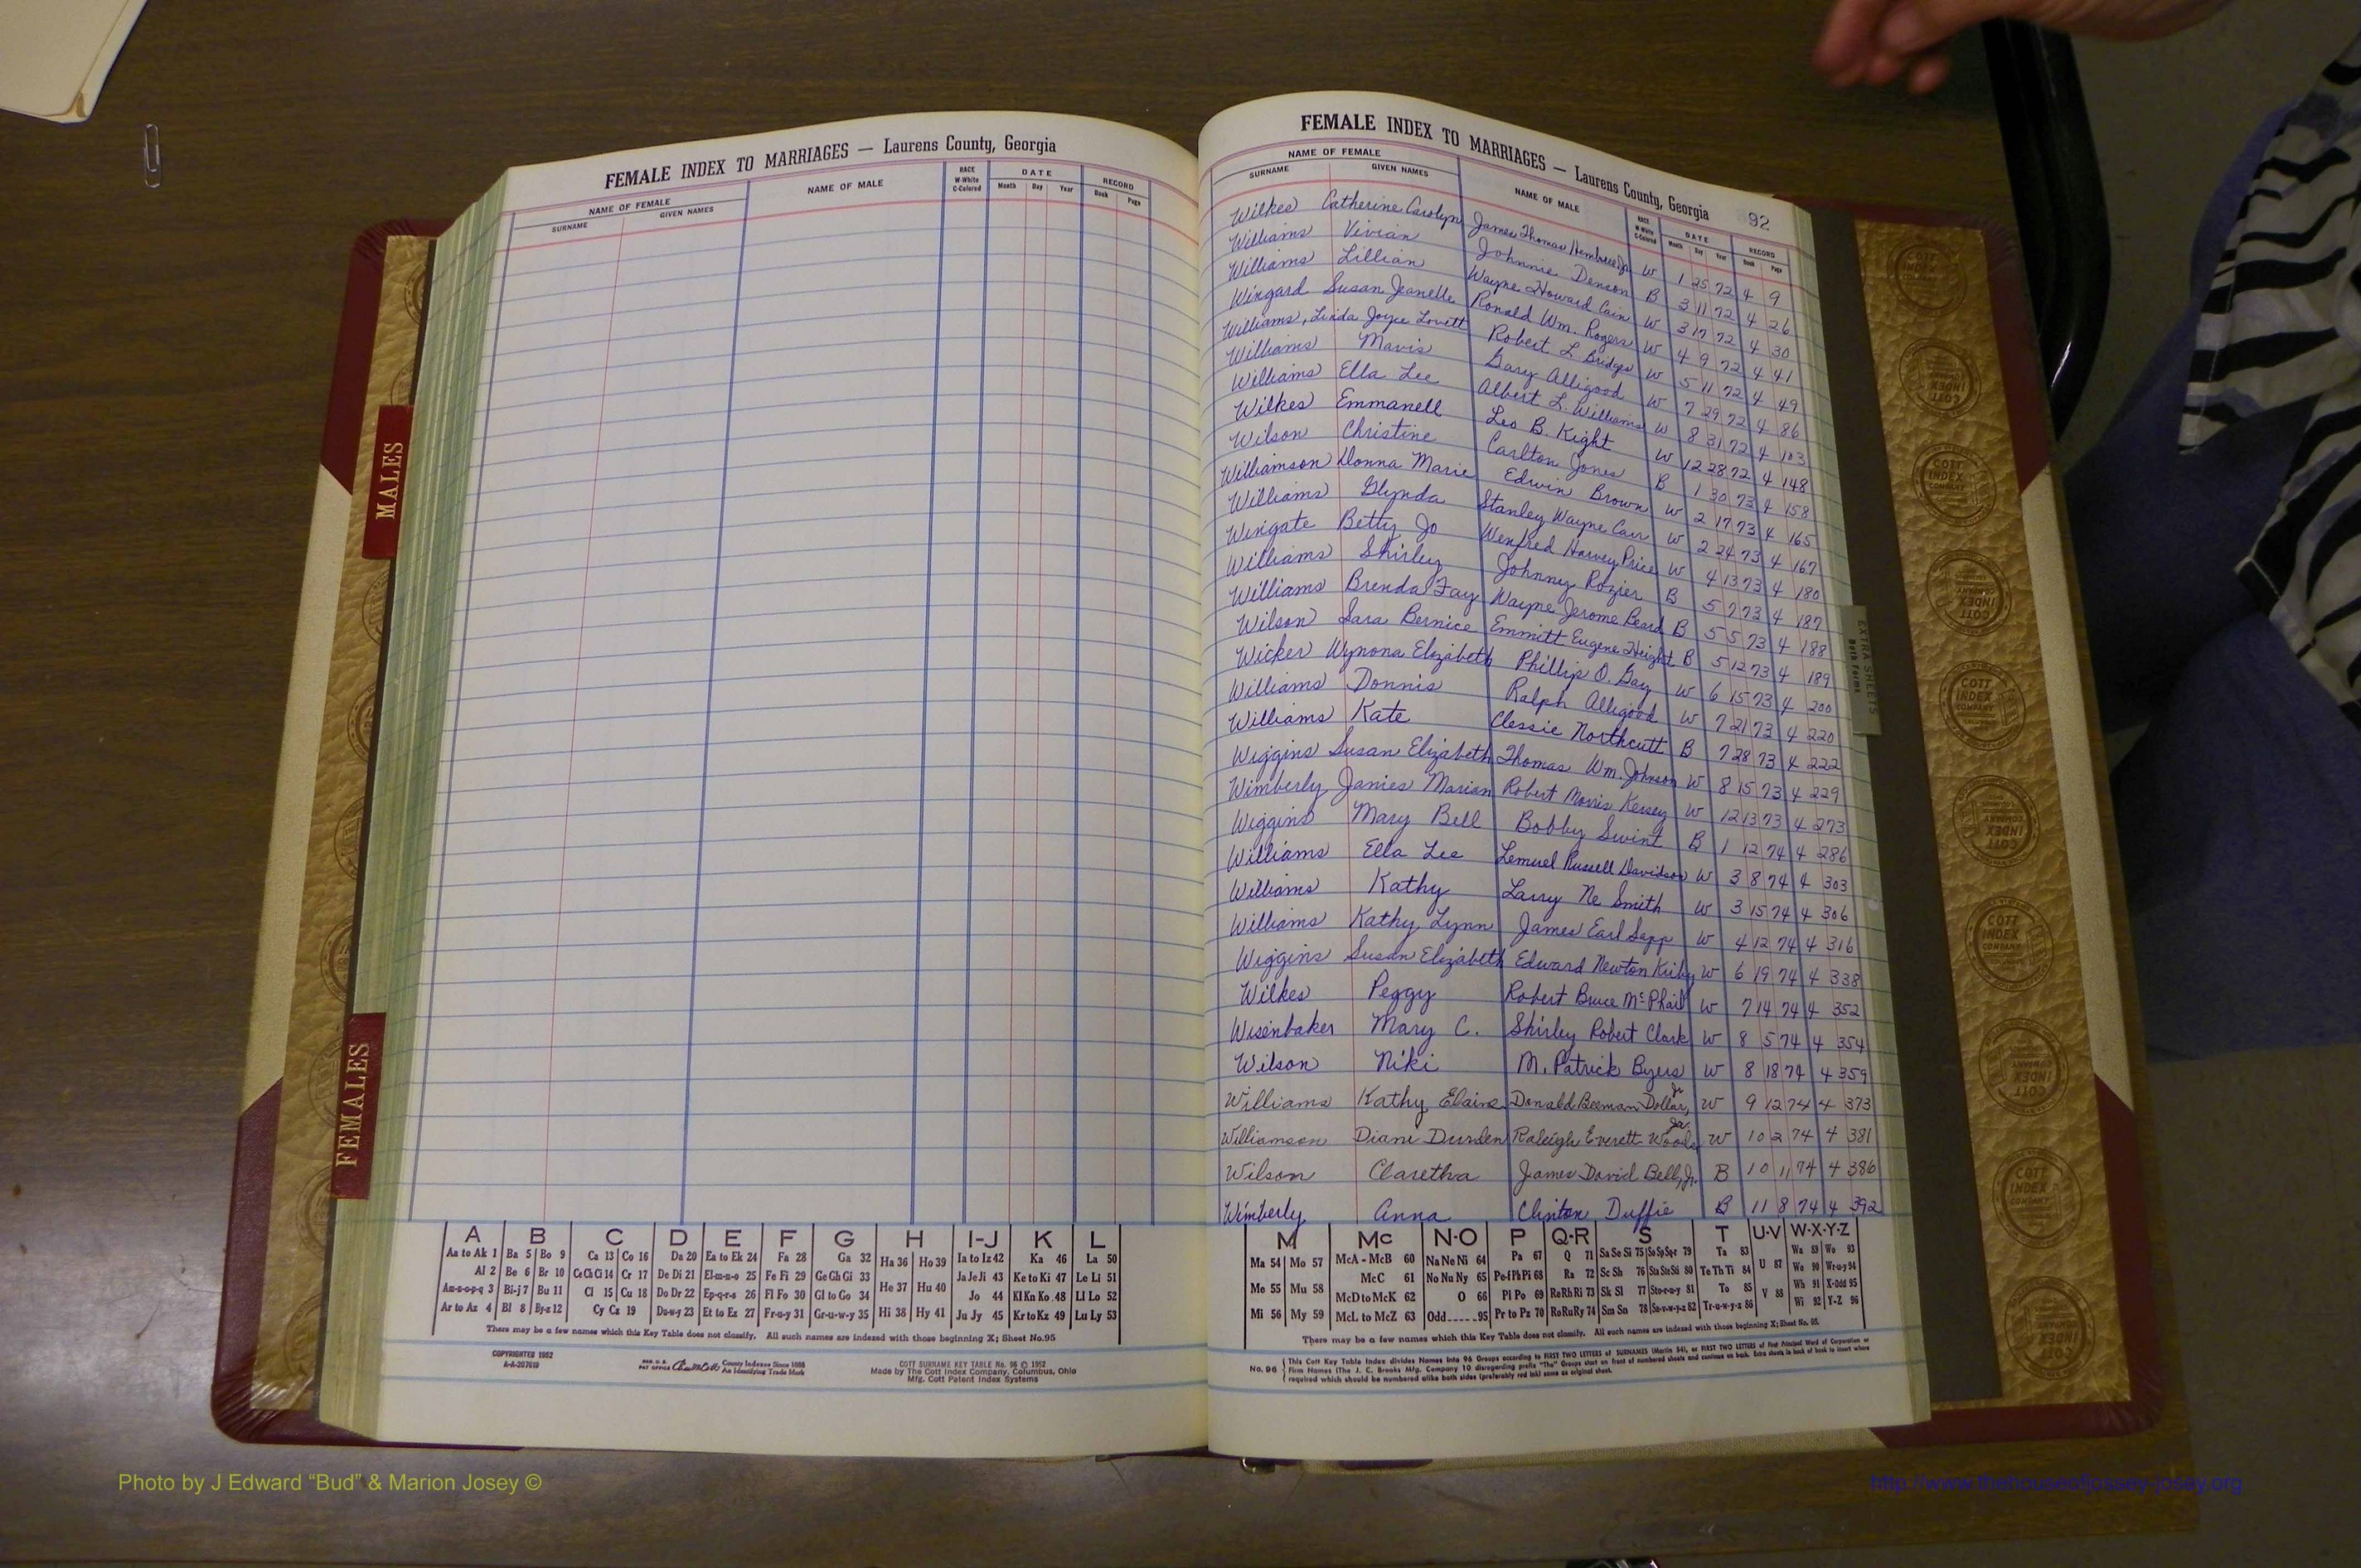 FEMALE INDEX TO MARRIAGES — Laurens County, Georgia
NAME OF FEMALE NAME OF MALE RACE W-White C-Colored DATE RECORD
SURNAME GIVEN NAMES Month Day Year Book Page
MALES
FEMALES
A B C D E F G H I-J K L
Aa to Ak 1 Ba 5 Bo 9 Ca 13 Co 16 Da 20 Ea to Ek 24 Fa 28 Ga 32 Ha 36 Ho 39 Ia to Iz 42 Ka 46 La 50
Al 2 Be 6 Br 10 Ce Ch Ci 14 Cr 17 De Di 21 El-m-n-o 25 Fe Fi 29 Ge Gh Gi 33 He 37 Hu 40 Ja Je Ji 43 Ke to Ki 47 Le Li 51
Am-n-o-p-q 3 Bi-j 7 Bu 11 Cl 15 Cu 18 Do Dr 22 Ep-q-r-s 26 Fl Fo 30 Gl to Go 34 Jo 44 Kl Kn Ko 48 Ll Lo 52
Ar to Az 4 Bl 8 By-z 12 Cy Cz 19 Du-w-y 23 Et to Ez 27 Fr-u-y 31 Gr-u-w-y 35 Hi 38 Hy 41 Ju Jy 45 Kr to Kz 49 Lu Ly 53
There may be a few names which this Key Table does not classify. All such names are indexed with those beginning X; Sheet No. 95
COPYRIGHTED 1952
A-A-207019
REG. U.S. PAT OFFICE County Indexes Since 1888 An Identifying Trade Mark
COTT SURNAME KEY TABLE No. 96 © 1952
Made by The Cott Index Company, Columbus, Ohio
Mfg. Cott Patent Index Systems
FEMALE INDEX TO MARRIAGES — Laurens County, Georgia 92
NAME OF FEMALE NAME OF MALE RACE W-White C-Colored DATE RECORD
SURNAME GIVEN NAMES Month Day Year Book Page
Wilkes Catherine Carolyn James Thomas Hembree Jr W 1 25 72 4 9
Williams Vivian Johnnie Denson B 3 11 72 4 26
Williams Lillian Wayne Howard Cain W 3 17 72 4 30
Wingard Susan Jeanelle Ronald Wm. Rogers W 4 9 72 4 41
Williams, Linda Joyce Lovett Robert L Bridges W 5 11 72 4 49
Williams Mavis Gary Alligood W 7 29 72 4 86
Williams Ella Lee Albert L. Williams W 8 31 72 4 103
Wilkes Emmanell Leo B. Kight W 12 28 72 4 148
Wilson Christine Carlton Jones B 1 30 73 4 158
Williamson Donna Marie Edwin Brown W 2 17 73 4 165
Williams Glynda Stanley Wayne Carr W 2 24 73 4 167
Wingate Betty Jo Wenfred Harvey Price W 4 13 73 4 180
Williams Shirley Johnny Rozier B 5 7 73 4 187
Williams Brenda Fay Wayne Jerome Beard B 5 5 73 4 188
Wilson Sara Bernice Emmitt Eugene Height B 5 12 73 4 189
Wicker Wynona Elizabeth Phillip O. Gay W 6 15 73 4 200
Williams Donnis Ralph Alligood W 7 21 73 4 220
Williams Kate Clessie Northcutt B 7 28 73 4 222
Wiggins Susan Elizabeth Thomas Wm. Johnson W 8 15 73 4 229
Wimberly Janies Marian Robert Morris Kersey W 12 13 73 4 273
Wiggins Mary Bell Bobby Swint B 1 12 74 4 286
Williams Ella Lee Lemuel Russell Davidson W 3 8 74 4 303
Williams Kathy Larry Ne Smith W 3 15 74 4 306
Williams Kathy Lynn James Earl Sapp W 4 12 74 4 316
Wiggins Susan Elizabeth Edward Newton Kirby W 6 19 74 4 338
Wilkes Peggy Robert Bruce McPhail W 7 14 74 4 352
Wisenbaker Mary C. Shirley Robert Clark W 8 5 74 4 354
Wilson Niki M. Patrick Byers W 8 18 74 4 359
Williams Kathy Elaine Donald Beeman Dollar, Jr W 9 12 74 4 373
Williamson Diane Durden Raleigh Everett Woods, Jr. W 10 2 74 4 381
Wilson Claretha James David Bell, Jr. B 10 11 74 4 386
Wimberly Anna Clinton Duffie B 11 8 74 4 392
EXTRA SHEETS
Both Forms
M Mc N-O P Q-R S T U-V W-X-Y-Z
Ma 54 Mo 57 McA - McB 60 Na Ne Ni 64 Pa 67 Q 71 Sa Se Si 75 So Sp Sq-r 79 Ta 83 U 87 Wa 89 Wo 93
Me 55 Mu 58 McC 61 No Nu Ny 65 Pe-f Ph Pi 68 Ra 72 Sc Sh 76 Sta Ste Sti 80 Te Th Ti 84 We 90 Wr-u-y 94
McD to McK 62 O 66 Pl Po 69 Re Rh Ri 73 Sk Sl 77 Sto-r-u-y 81 To 85 V 88 Wh 91 X-Odd 95
Mi 56 My 59 McL to McZ 63 Odd 95 Pr to Pz 70 Ro Ru Ry 74 Sm Sn 78 Su-v-w-y-z 82 Tr-u-w-y-z 86 Wi 92 Y-Z 96
There may be a few names which this Key Table does not classify. All such names are indexed with those beginning X; Sheet No. 95.
No. 96 This Cott Key Table Index divides Names into 96 Groups according to FIRST TWO LETTERS of SURNAMES (Martin 54), or FIRST TWO LETTERS of First Principal Word of Corporation or
Firm Names (The J. C. Brooks Mfg. Company 10 disregarding prefix "The") Groups start on front of numbered sheets and continue on back. Extra sheets in back of book to insert where
required which should be numbered alike both sides (preferably red ink) same as original sheet.
COTT INDEX COMPANY
Photo by J Edward “Bud” & Marion Josey ©
http://www.thehouseofjossey-josey.org